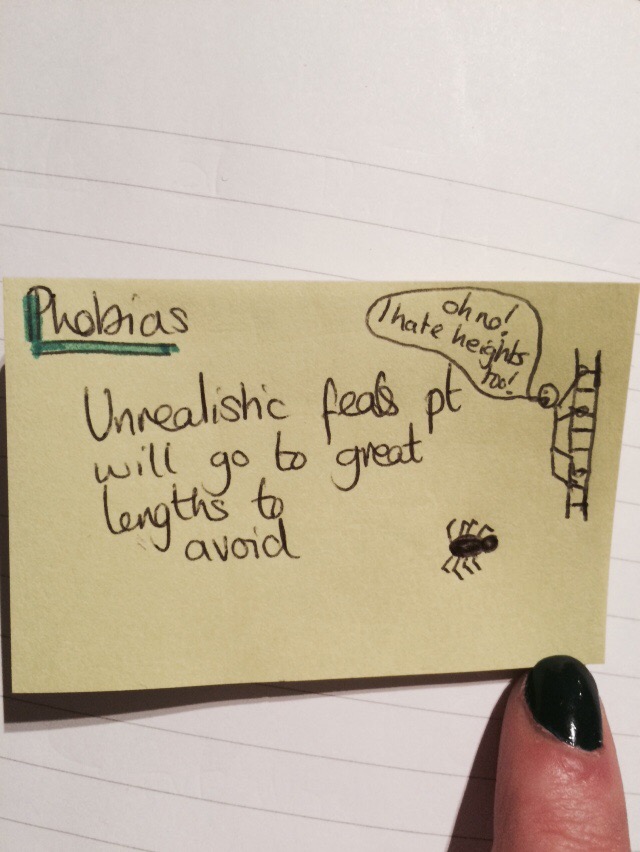 Phobias
oh no!
I hate heights
too!
Unrealistic fears pt
will go to great
lengths to
avoid